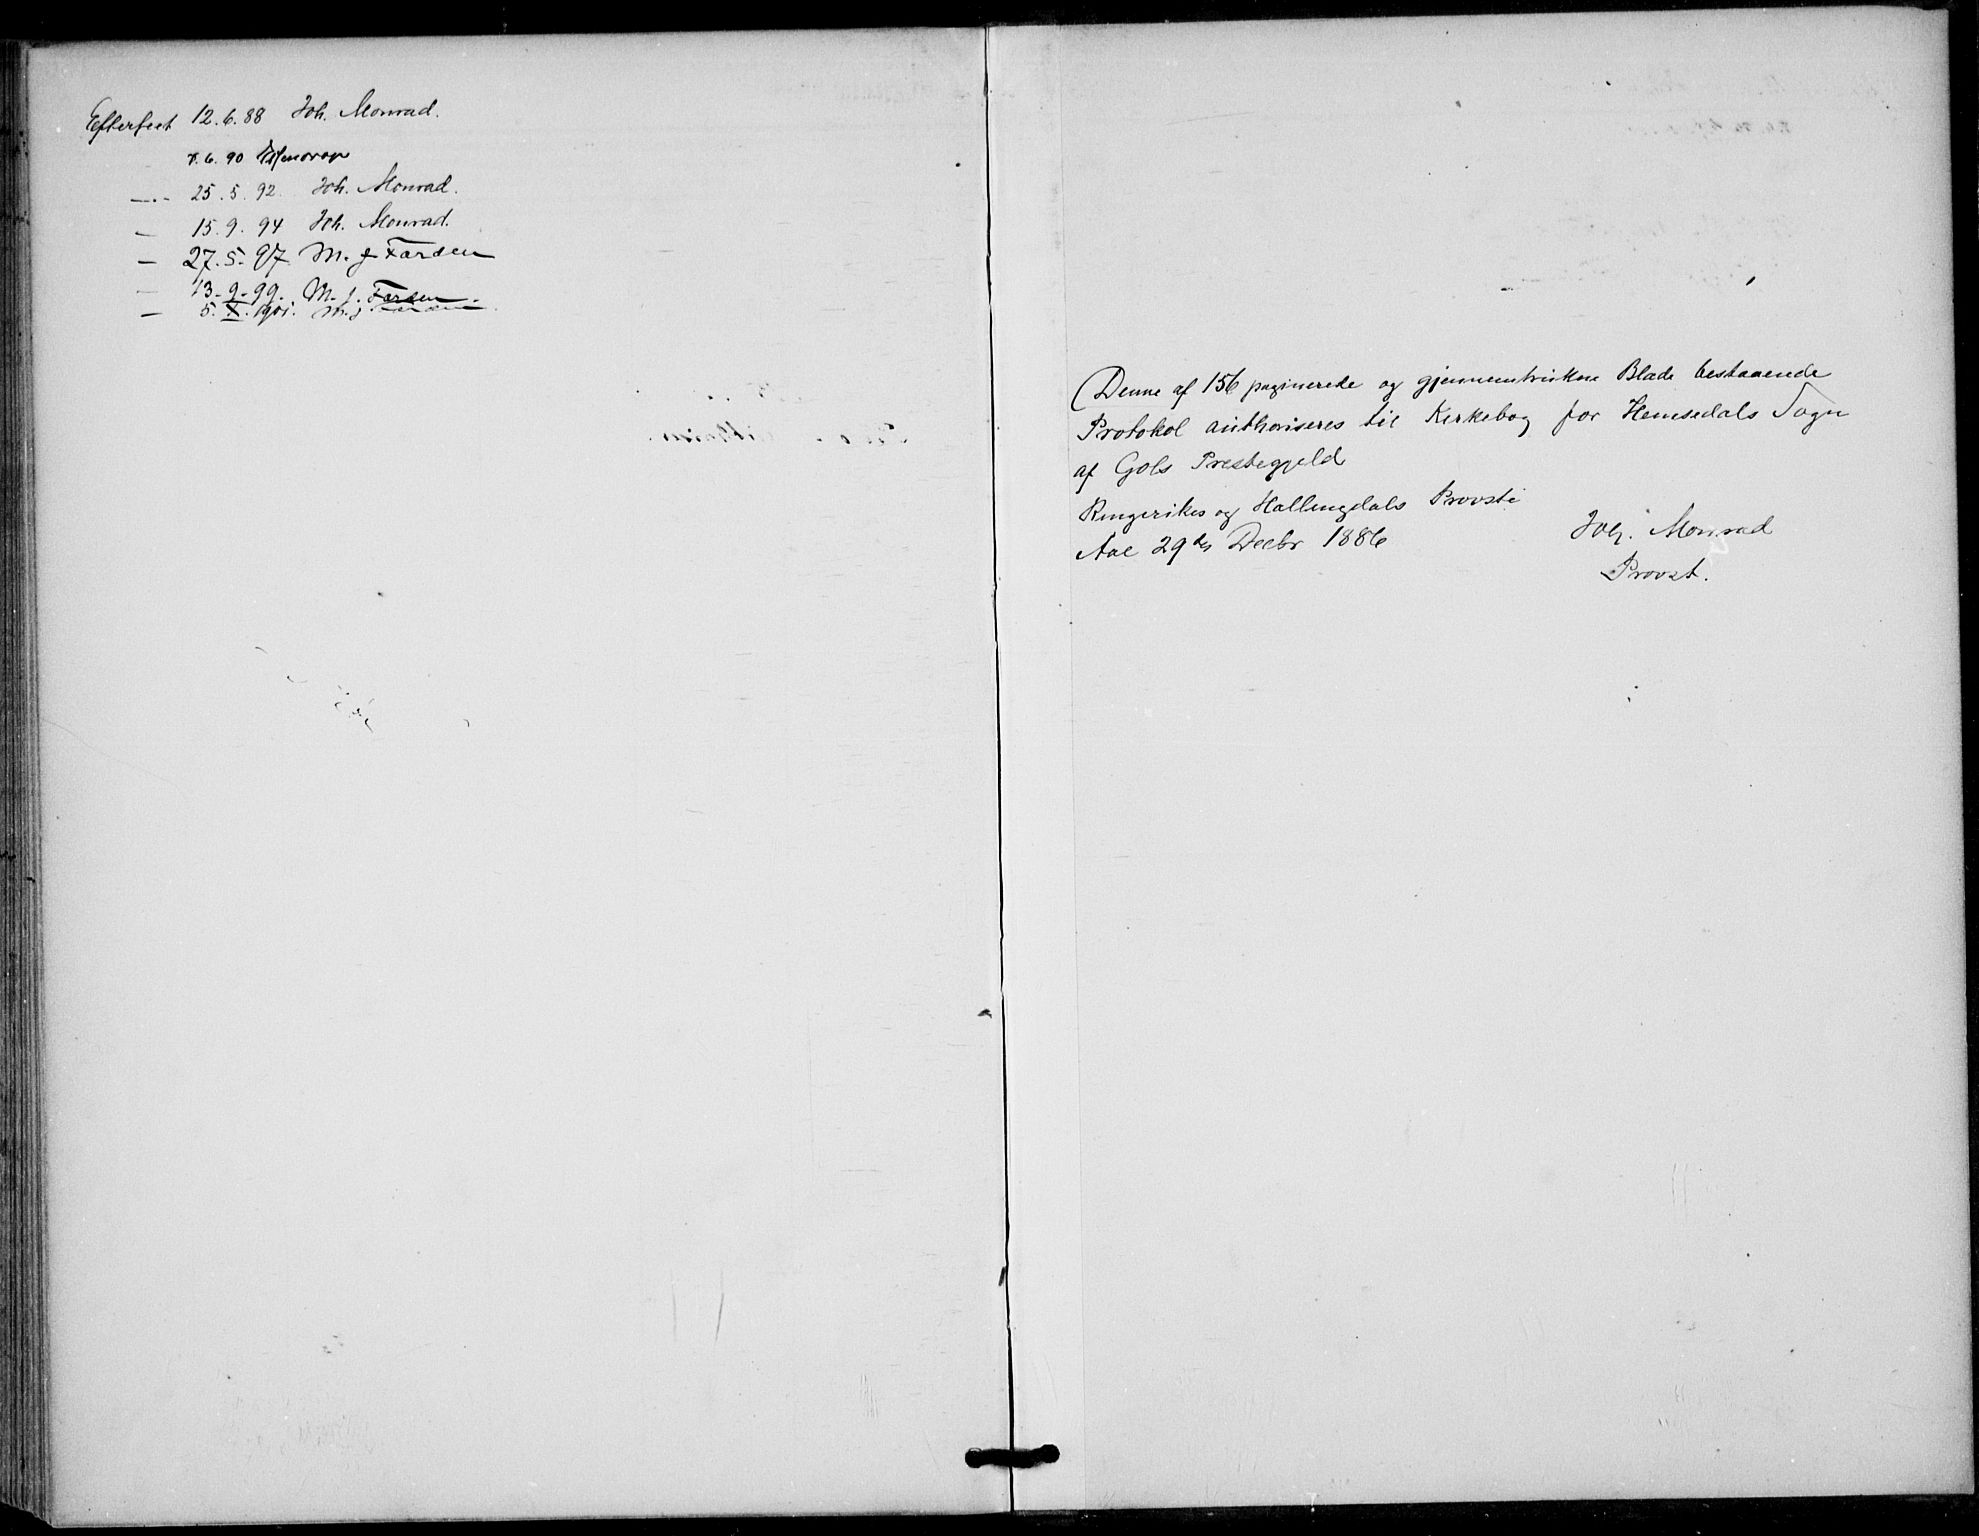 Efterseet 12.6.88 Joh. Monrad.
7.6.90
—"— 25.5.92. Joh. Monrad.
— 15.9.94 Joh. Monrad.
— 27.5.97. M. J. Færden
— 13-9-99. M. J. Færden.
— 5.X.1901. M. J. Færden.
Denne af 156 paginerede og gjennemtrukne Blade bestaaende
Protokol authoriseres til Kirkebog for Hemsedals Sogn
af Gols Prestegjeld
Ringerikes og Hallingdals Provsti
Aal 29de Decbr 1886
Joh. Monrad
Provst.